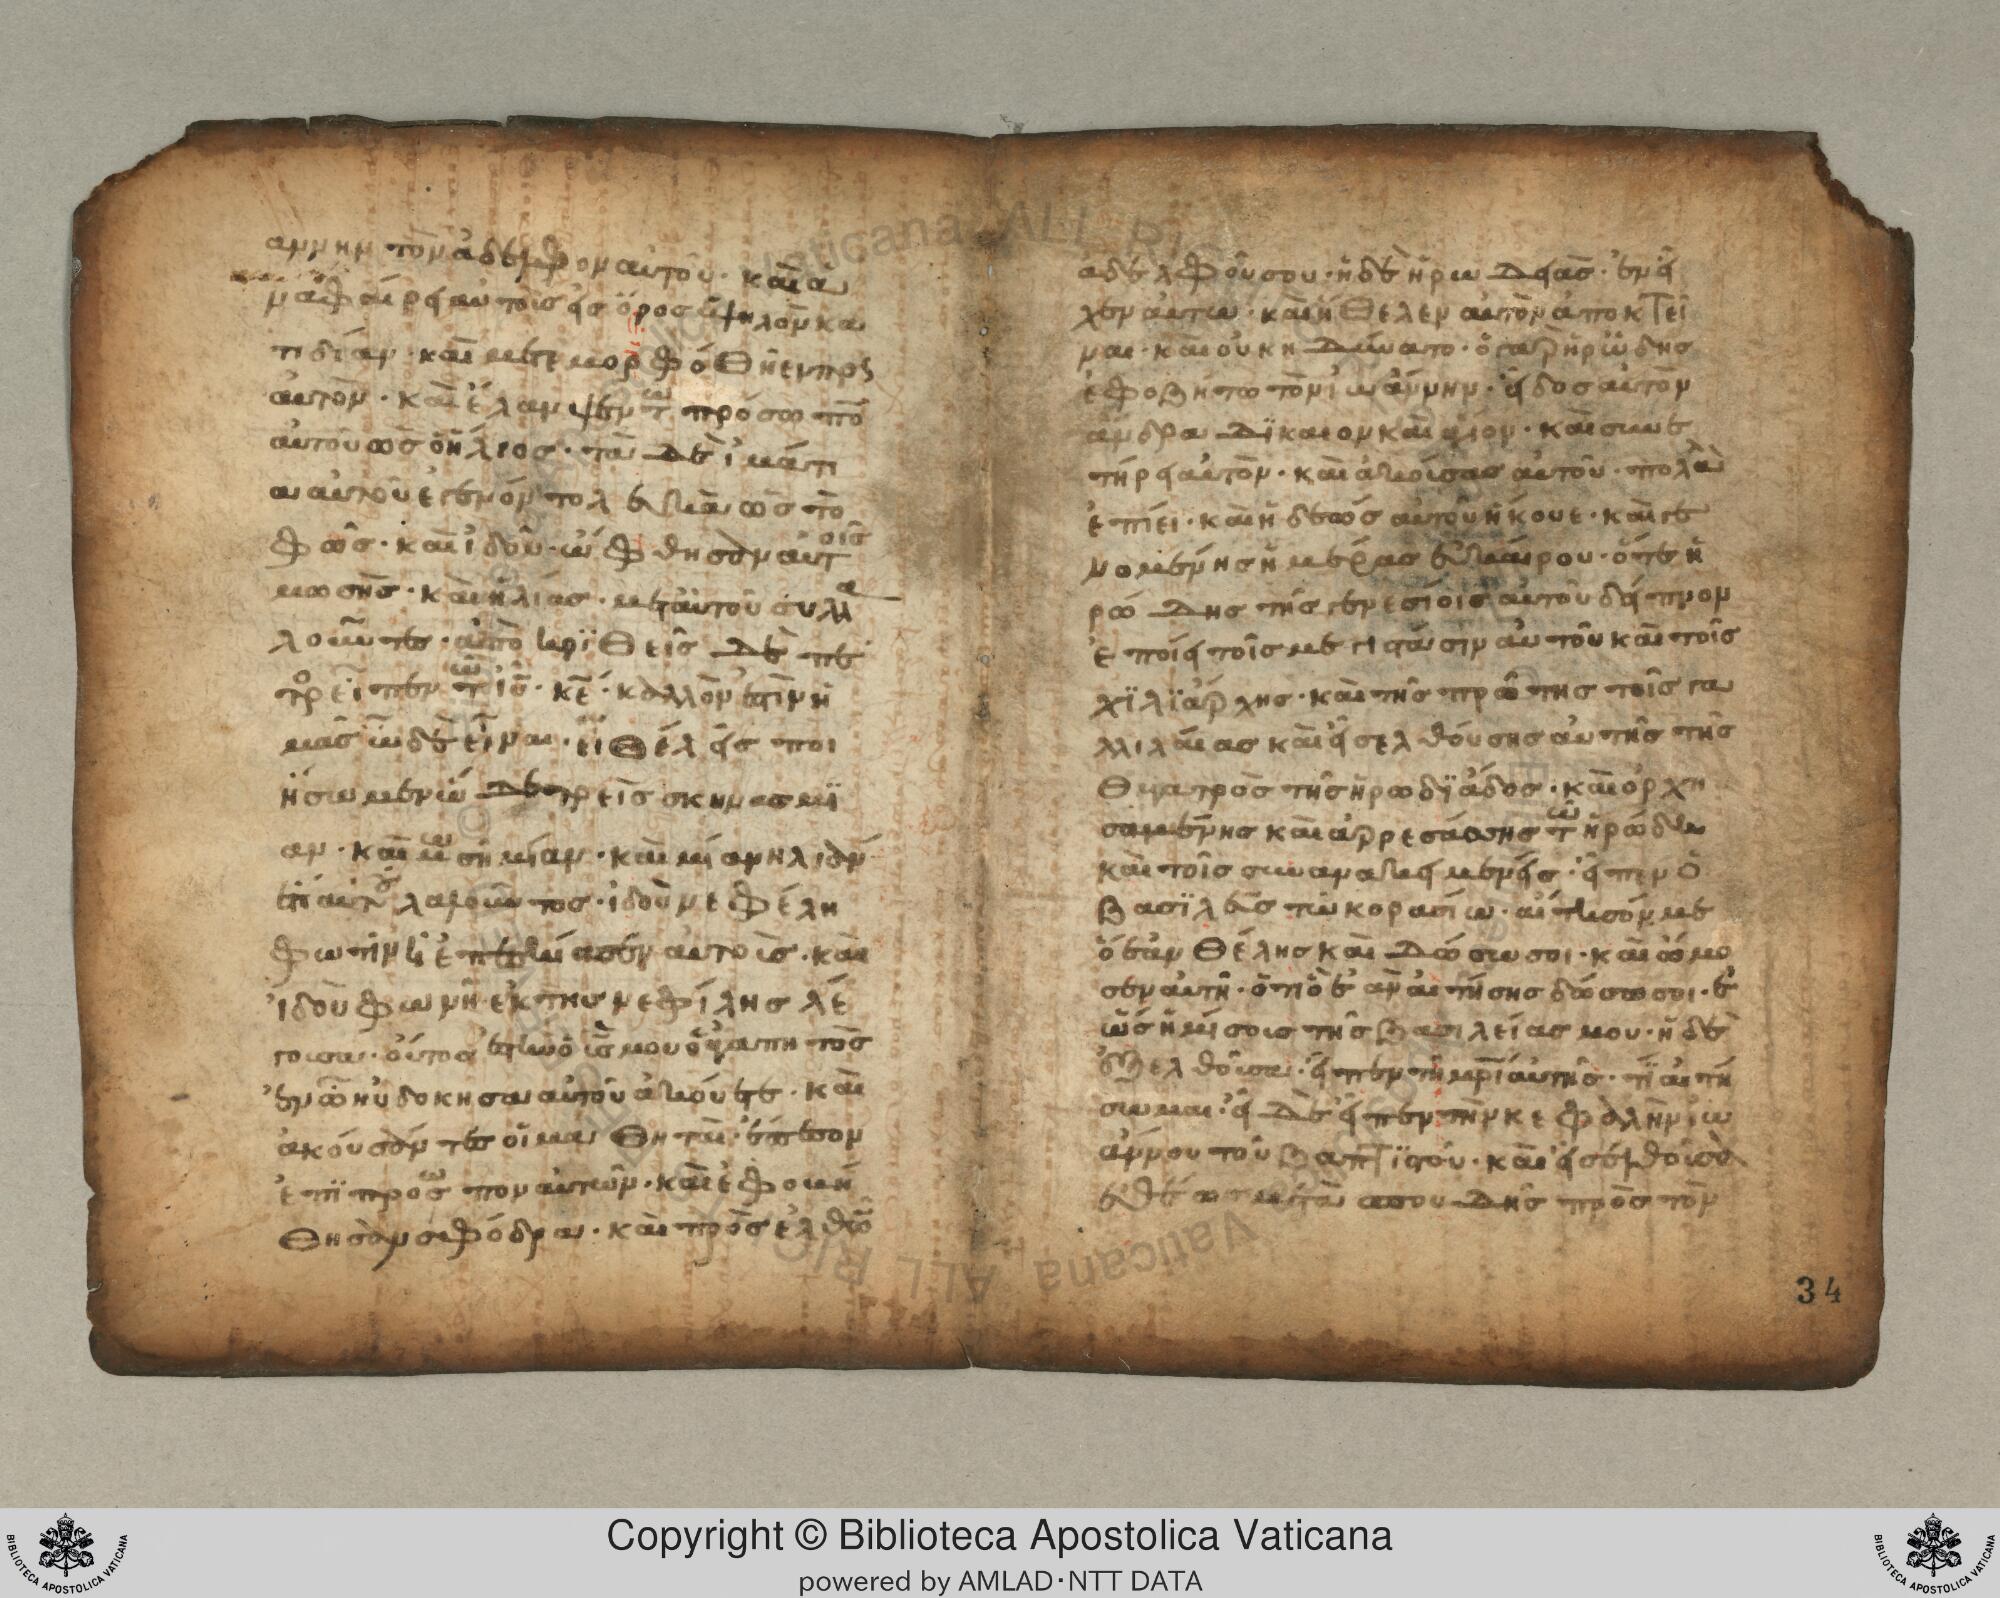 αννην τον ἀδελφον αυτοῦ· και ἀ
ναφαίρει αυτοῖς εἰς ὄρος ὑψηλὸν κα
τιδίαν· και μετεμορφόθη ενπρς
αυτὸν· και ἔλαμψεν τω πρόσωπο
αυτοῦ ωσ ὁ ἥλιος· τὰ δὲ ἱμάτι
α αυτοῦ εγενόντο λευκὰ ωσ τὸ
φῶς· και ἰδοῦ· ὤφθησαν αυτοῖς
μωσὴς· και ἡλίας· μεταυτοῦ συλλα
λουντες· ἀποκριθεὶς δὲ πε
τρο εἶπεν τω ιῦ· κε· καλλὸν εστὶν ἡ
μᾶς ὧδε εἶναι· εἰ θέλεις ποι
ήσωμεν ὧδε τρεῖς σκηνας μϊ
αν· και μωσὴ μίαν· και μίαν ηλιαν
ετι αυτου λαλοῦντος· ἰδοὺ νεφέλη
φωτινὶ ἐπεσκίασεν αυτοῖς· και
ἰδοὺ φωνὴ ἐκ τησ νεφίλης λέ
γουσα· οὗτοσ ἐστιν ὁ υἱς μου ὁ ἀγαπητὸς
ἐν ὧ ηὐδοκησα αυτοῦ ἀκούετε· και
ἀκούσαντες οἱ μαθηταὶ· ἔπεσον
ἐπϊ πρόσωπον αυτῶν· και ἐφοβή
θησαν σφόδρα· και πρὸσἐλθῶ
ἀδελφοῦ σου· ἡ δὲ ἡρωδιὰσ· ἐνεῖ
χεν αυτω· και ἤθελεν αυτὸν ἀποκτεῖ
ναι· και οὐκ ηδύνατο· ὁ γὰρ ἡρώδης
ἐφοβήτω τὸν ἰωάννην· εἰδος αυτὸν
ἄνδρα δϊκαιον και άγιον· και συνε
τήρει αυτὸν· και ἀκούσας αυτοῦ· πολλὰ
ἐπίει· και ἡδεώς αυτοῦ ἤκουε· και γε
νομένης ἡμέρας εὐκαίρου· ὅτε ἡ
ρώδης τῆς γενεσίοις αυτοῦ δεῖπνον
ἐποίει τοῖς μεγιστάσιν αυτοῦ και τοῖς
χϊλϊάρχης· και τῆς πρώτης τοῖς γα
λλιλαίας και εἰσελθούσης αυτῆς τῆς
θυγατρὸς τῆς ἡρωδϊάδος· και ὀρχη
σαμένης και ἀρρεσάσης τω ἡρώδη
και τοῖς συνανακειμένεις· εἶπεν ὁ
βασϊλεὺς τω κορασίω· αἴτησόν με
ὁ ἐὰν θέλης και δώσω σοι· και ὤμο
σεν αυτῆ· ὅτι ὃ ἐὰν αἰτήσης δώσω σοι· ἑ
ὥς ἡμίσοις τῆς βασιλείας μου· ἡ δὲ
ἐξελθοῦσα· εἶπεν τῆ μρϊ αυτῆς· τϊ αἰτή
σωμαι· εἰ δὲ εἶπεν τὴν κεφαλὴν ἰω
ἀννου τοῦ βαπτϊστοῦ· και εἰσελθοῦσα
εὐθέως μετὰ σπουδῆς πρὸς τὸν
34
Copyright © Biblioteca Apostolica Vaticana
powered by AMLAD·NTT DATA